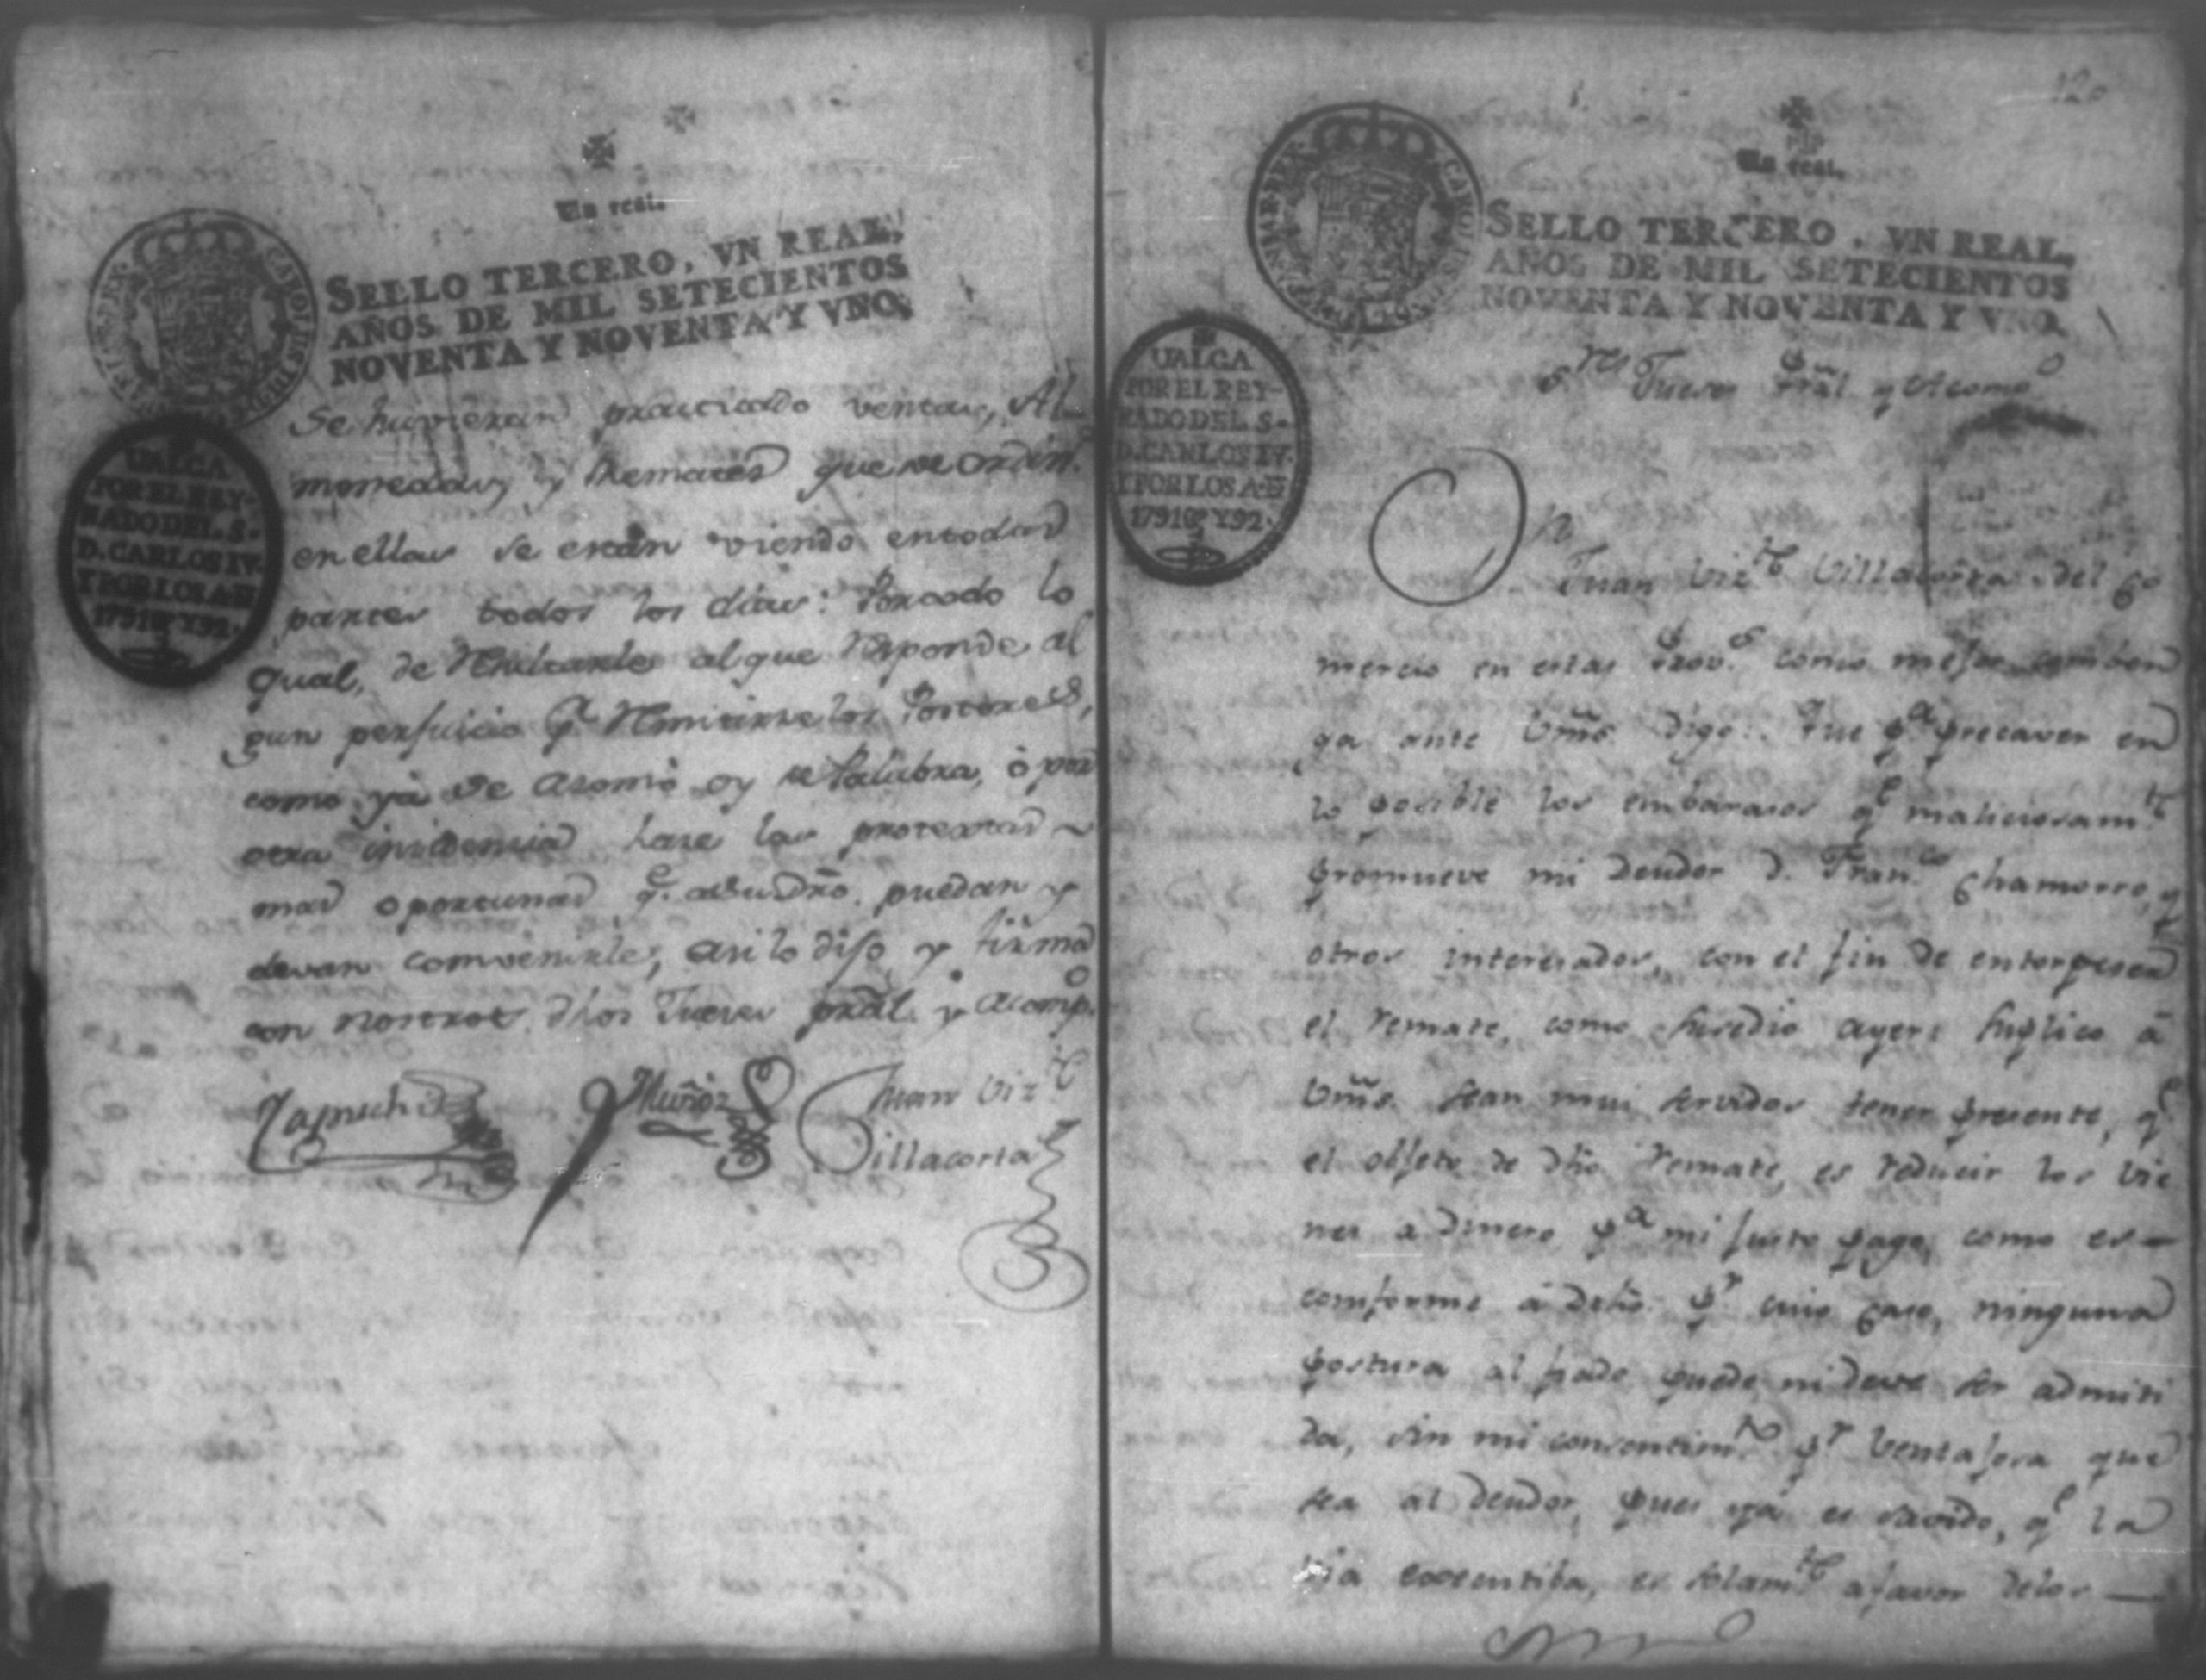 Un real.
SELLO TERCERO, VN REAL,
AÑOS DE MIL SETECIENTOS
NOVENTA Y NOVENTA Y VNO.
VALGA
POR EL REY-
NADO DEL S.
D. CARLOS IV.
Y POR LOS A. DE
1791 Y 92.
Se huvieran practicado ventas, Al
monedas, y Remates que
en ellas se están viendo en todas
partes todos los días: Por todo lo
qual, de Resultarle al que Responde al
gun perjuicio qe. Remitirse los Postores,
como ya se asomó oy de Palabra, ò por
otra insidencia hase las protestas
mas oportunas qe. a su dro. puedan y
devan convenirle; asi lo dijo y firma
con nosotros dhos Jueces pral. y acompo.
Muñoz Juan Vizte
Villacorta
120
Un real.
SELLO TERCERO, VN REAL,
AÑOS DE MIL SETECIENTOS
NOVENTA Y NOVENTA Y VNO.
VALGA
POR EL REY-
NADO DEL S.
D. CARLOS IV.
Y POR LOS A. DE
1791 Y 92.
Sres Jueces Pral. y Acompo
Dn.
Juan Vizte. Villacorta del Co
mercio en estas Provs. como mejor comben
ga ante Vms. digo: Que pa precaver en
lo posible los embarasos qe maliciosamte
promueve mi deudor D. Franco Chamorro, y
otros interesados, con el fin de entorpeser
el remate, como susedio ayer: suplico à
Vms. sean mui servidos tener presente, qe
el objeto de dho remate, es reducir los vie
nes a dinero pa mi justo pago, como es
conforme á dro. pr cuio caso, ninguna
postura al fiado puede ni deve ser admiti
da, sin mi consentimto pr ventajosa que
sea al deudor, pues ya es savido, qe la
via executiba, es solamte a favor delos